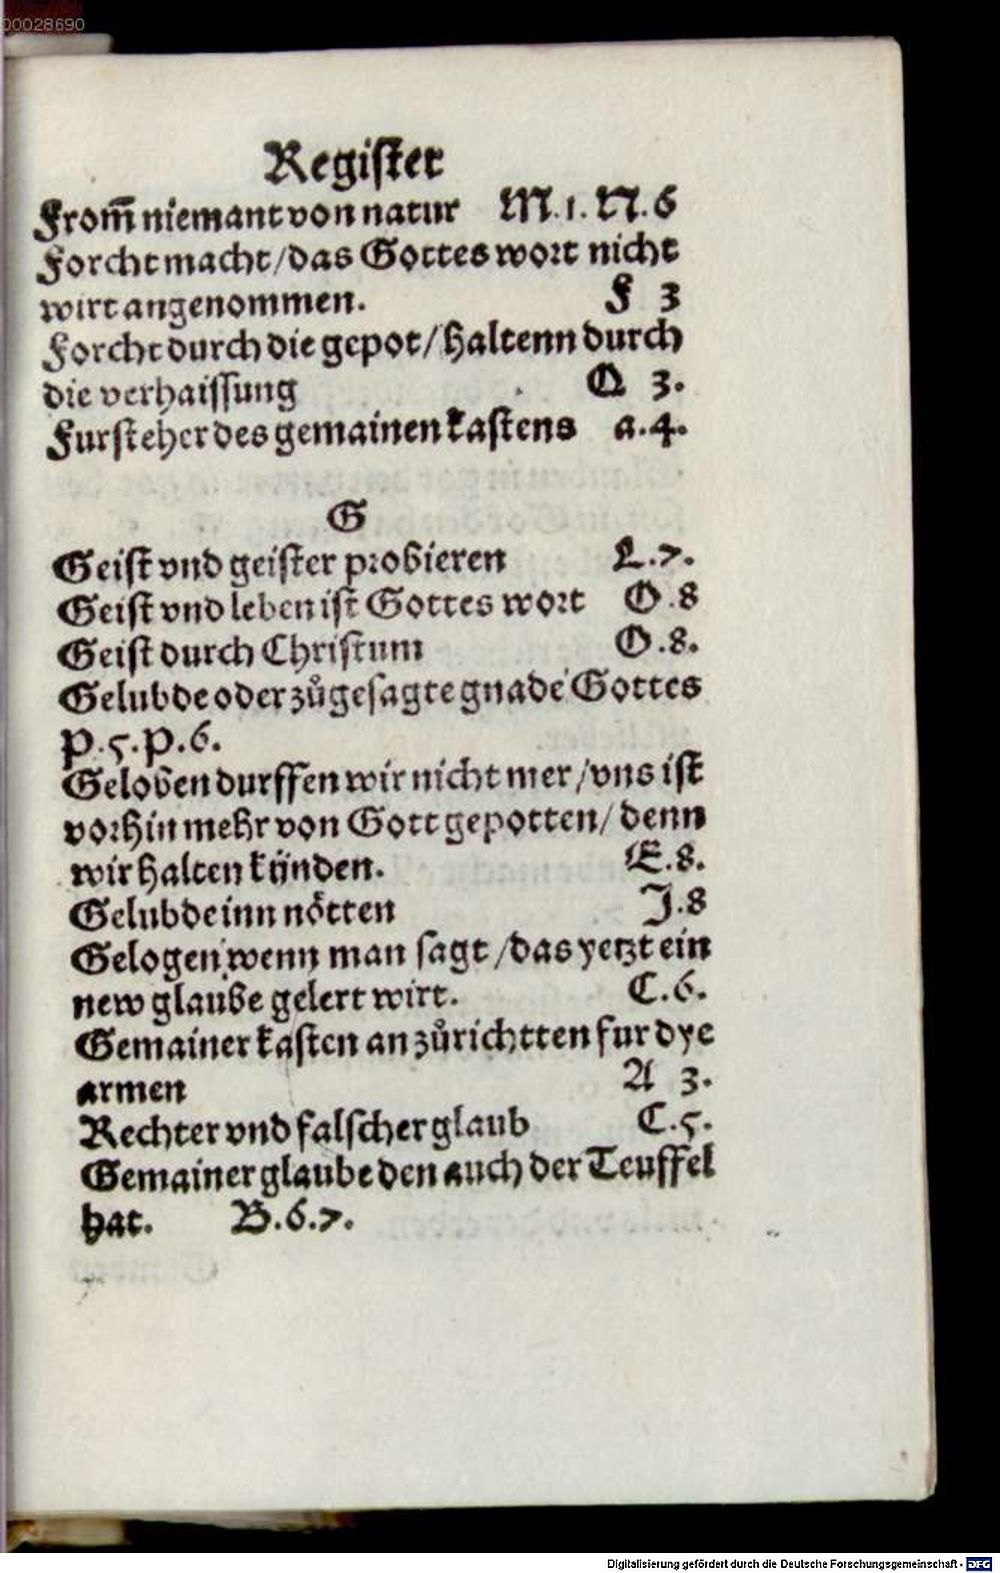 00028690
Register
From̃ niemant von natur M.1.N.6
Forcht macht/das Gottes wort nicht
wirt angenommen. F 3
Forcht durch die gepot/haltenn durch
die verhaissung Q 3.
Fursteher des gemainen kastens a.4.
G
Geist vnd geister probieren L.7.
Geist vnd leben ist Gottes wort O.8
Geist durch Christum O.8.
Gelubde oder zůgesagte gnade Gottes
P.5.P.6.
Geloben durffen wir nicht mer/vns ist
vorhin mehr von Gott gepotten/denn
wir halten kijnden. E.8.
Gelubde inn nötten J.8
Gelogen wenn man sagt/das yetzt ein
new glaube gelert wirt. C.6.
Gemainer kasten an zůrichtten fur dye
armen A 3.
Rechter vnd falscher glaub C.5.
Gemainer glaube den auch der Teuffel
hat. B.6.7.
Digitalisierung gefördert durch die Deutsche Forschungsgemeinschaft - DFG